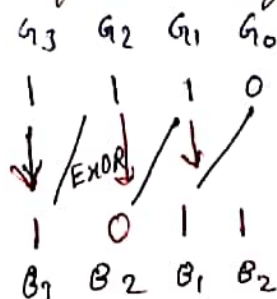 G3 G2 G1 G0
1 1 1 0
ExOR
1 0 1 1
B3 B2 B1 B2